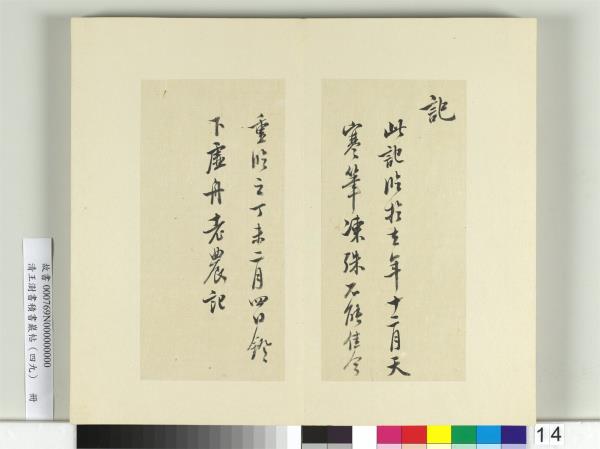 記
此記臨於去年十二月天
寒筆凍殊不能佳今
重臨之丁未二月四日鐙
下虛舟老農記
故書000769N000000000
清王澍書積書巖帖(四九) 冊
14